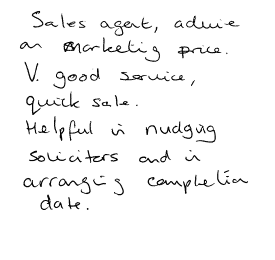 Sales agent, advise
on marketing price.
V. good service,
quick sale.
Helpful in nudging
solicitors and in
arranging completion
date.